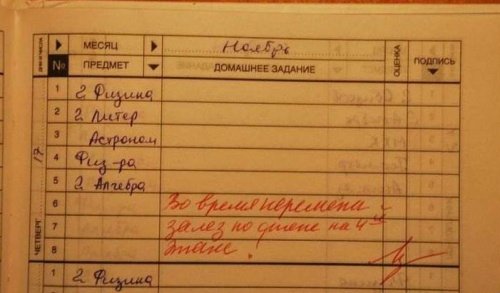 МЕСЯЦ Ноябрь ОЦЕНКА ПОДПИСЬ
№ ПРЕДМЕТ ДОМАШНЕЕ ЗАДАНИЕ
ЧЕТВЕРГ 17
1 2. Физика
2 2. Литер
3 Астроном
4 Физ-ра
5 2. Алгебра
6 Во время перемены
7 залез по стене на 4й
8 этаж.
1 2. Физика